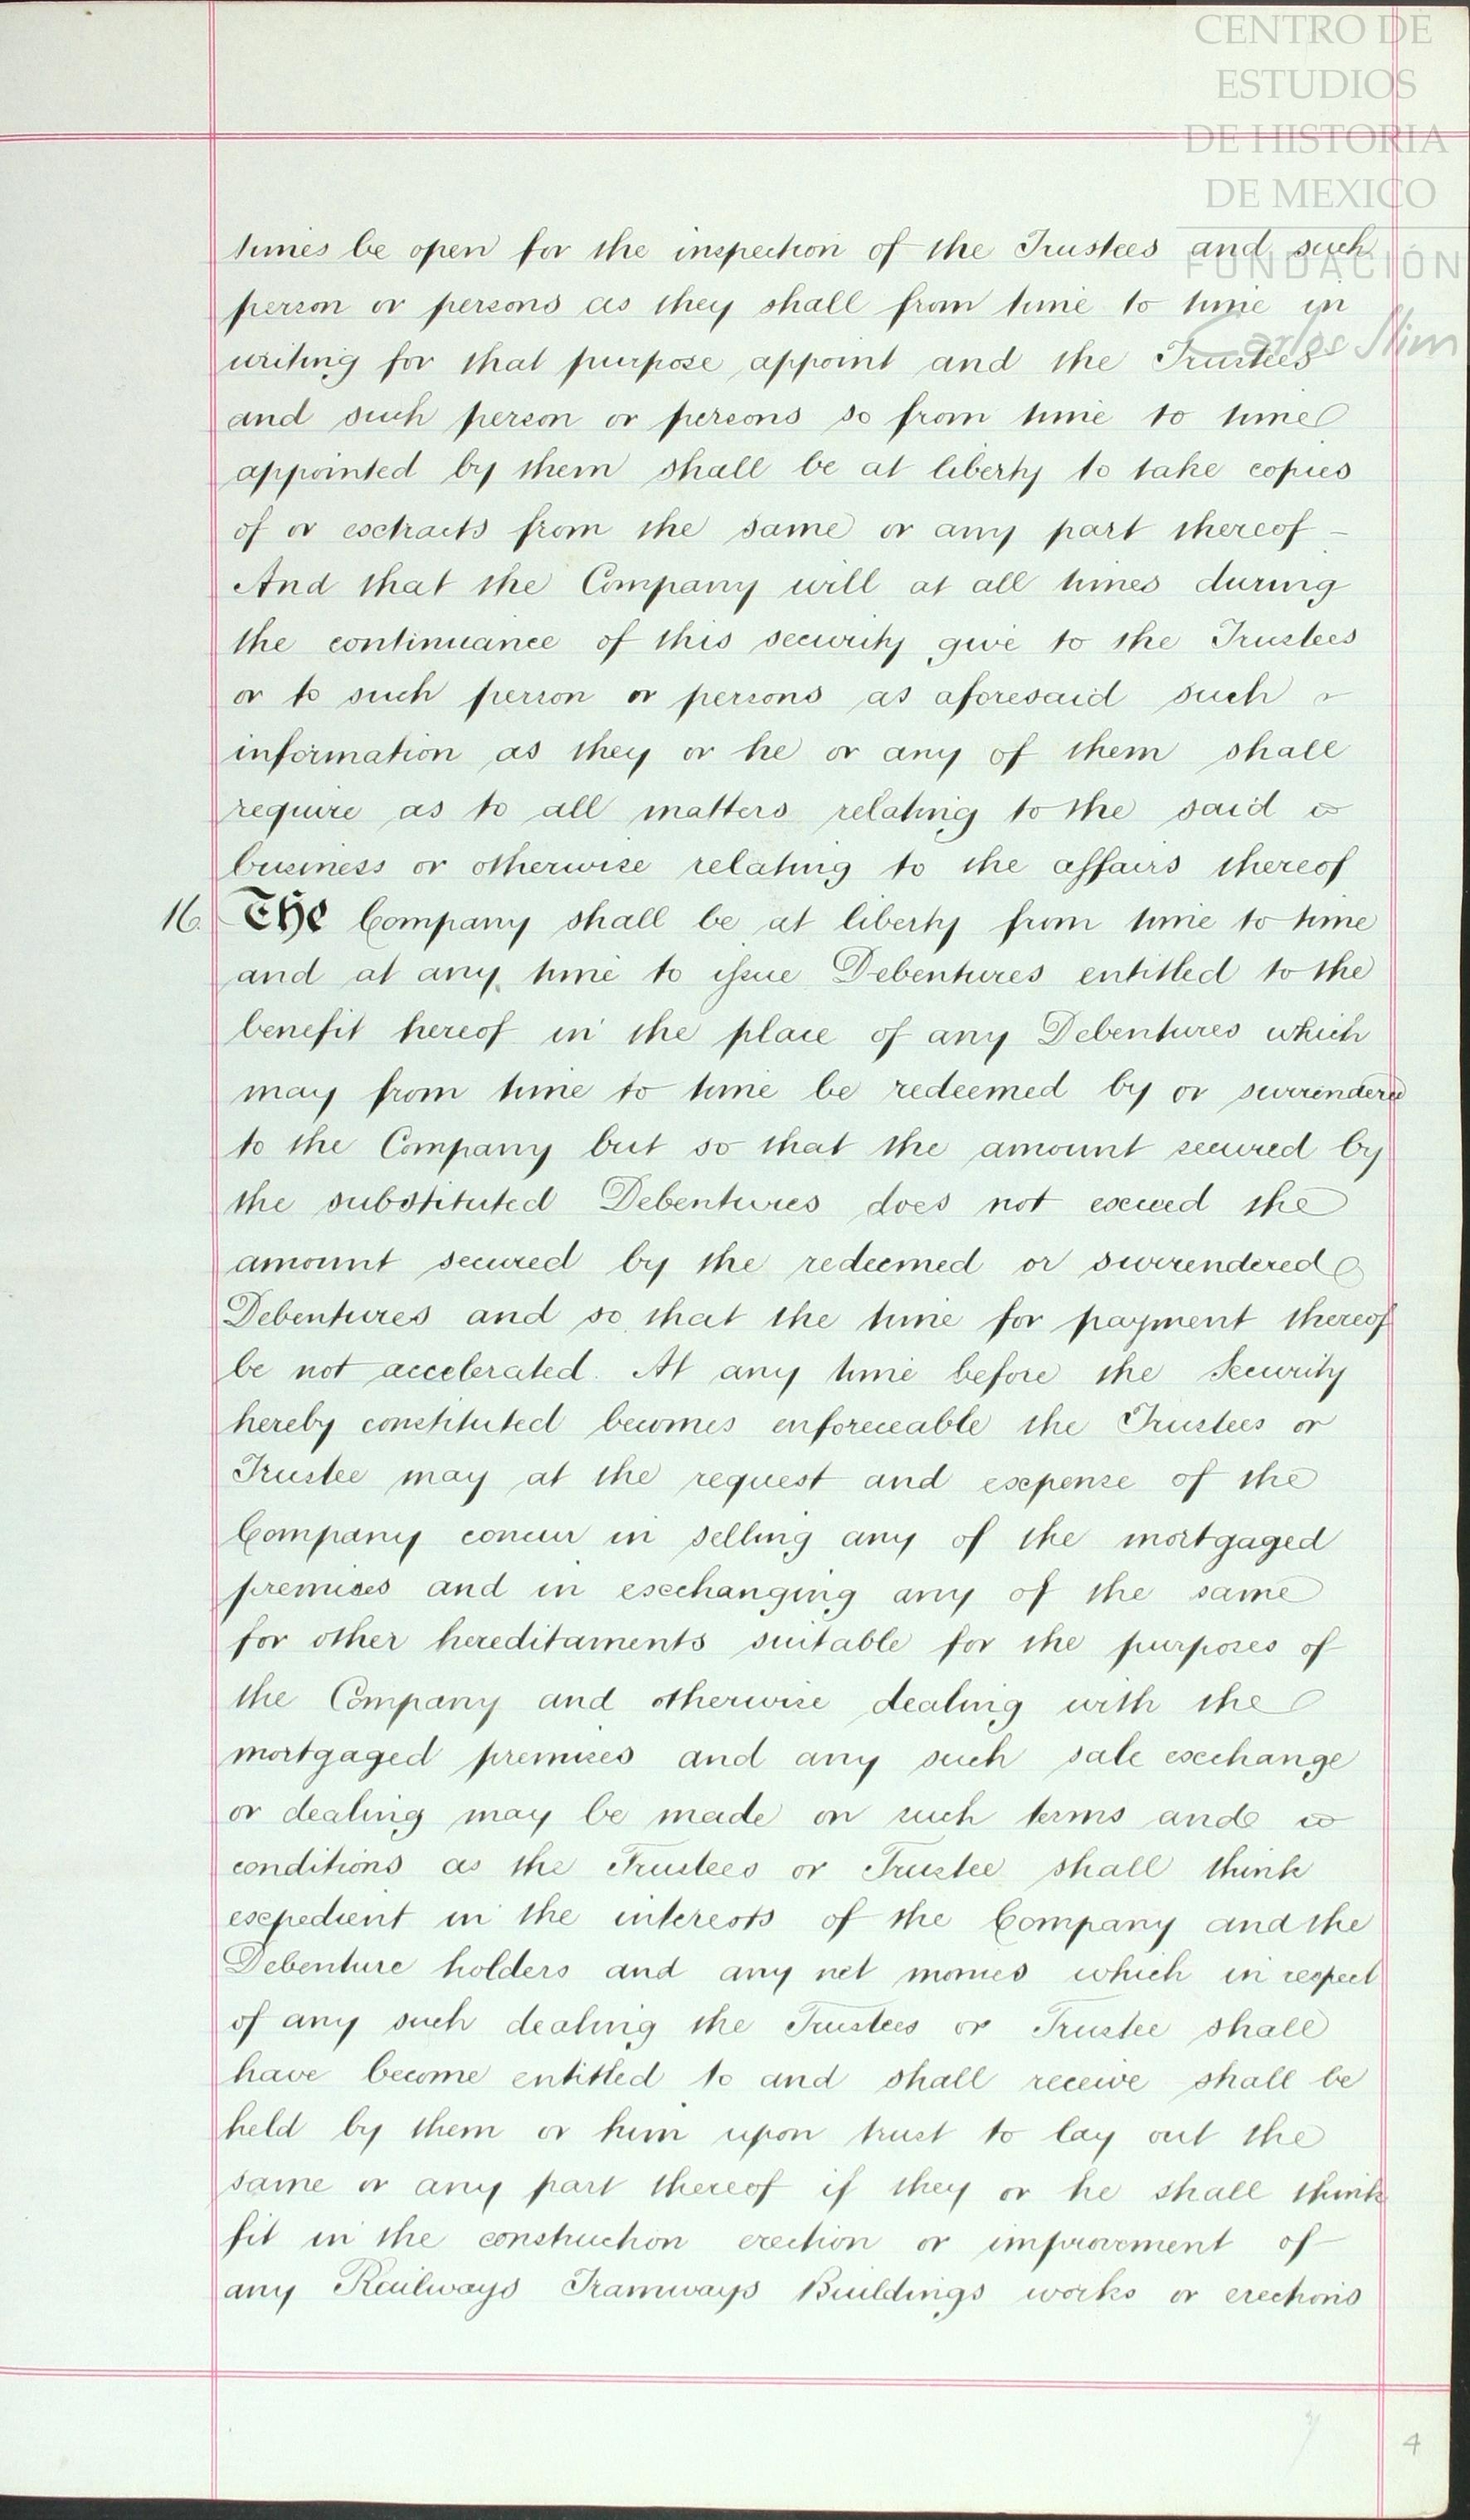 CENTRO DE
ESTUDIOS
DE HISTORIA
DE MEXICO
FUNDACIÓN
Carlos Slim
times be open for the inspection of the Trustees and such
person or persons as they shall from time to time in
writing for that purpose appoint and the Trustees
and such person or persons so from time to time
appointed by them shall be at liberty to take copies
of or extracts from the same or any part thereof –
And that the Company will at all times during
the continuance of this security give to the Trustees
or to such person or persons as aforesaid such
information as they or he or any of them shall
require as to all matters relating to the said
business or otherwise relating to the affairs thereof
16. The Company shall be at liberty from time to time
and at any time to issue Debentures entitled to the
benefit hereof in the place of any Debentures which
may from time to time be redeemed by or surrendered
to the Company but so that the amount secured by
the substituted Debentures does not exceed the
amount secured by the redeemed or surrendered
Debentures and so that the time for payment thereof
be not accelerated. At any time before the Security
hereby constituted becomes enforceable the Trustees or
Trustee may at the request and expense of the
Company concur in selling any of the mortgaged
premises and in exchanging any of the same
for other hereditaments suitable for the purposes of
the Company and otherwise dealing with the
mortgaged premises and any such sale exchange
or dealing may be made on such terms and
conditions as the Trustees or Trustee shall think
expedient in the interests of the Company and the
Debenture holders and any net monies which in respect
of any such dealing the Trustees or Trustee shall
have become entitled to and shall receive shall be
held by them or him upon trust to lay out the
same or any part thereof if they or he shall think
fit in the construction erection or improvement of
any Railways Tramways Buildings works or erections
4